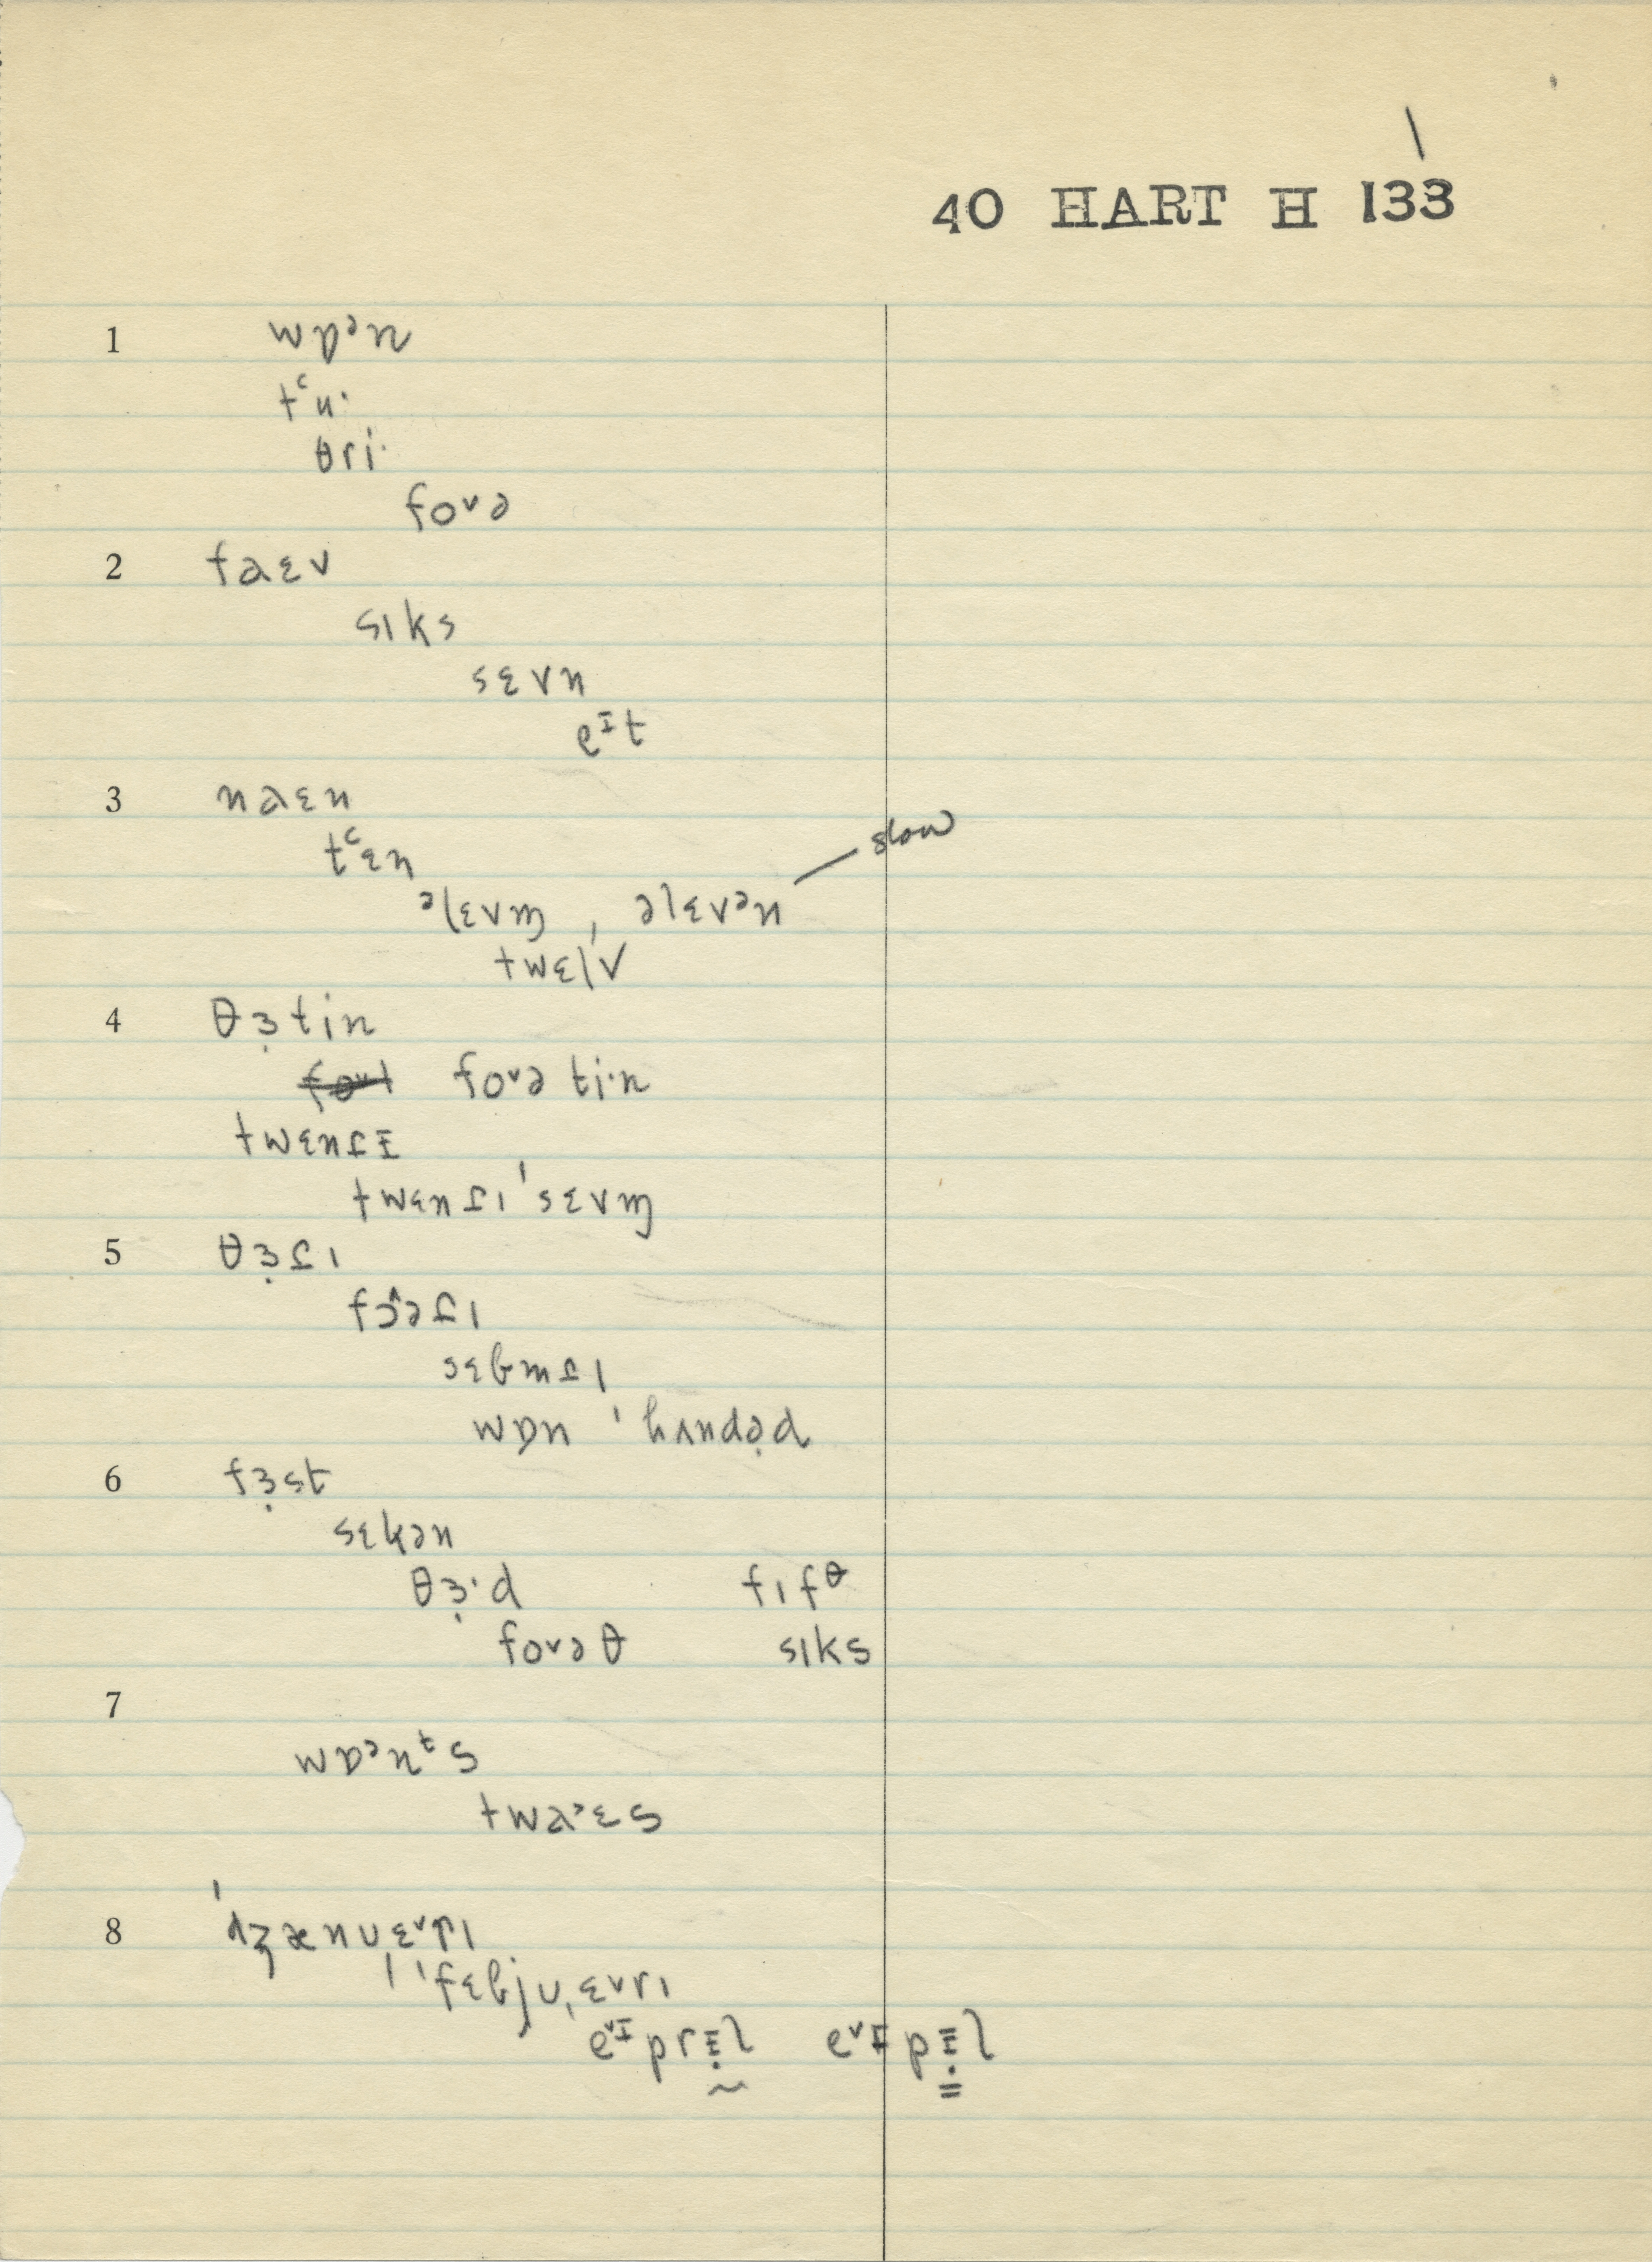 40 HART H 133
1 wɒᵊn
tʻu·
θri·
foᵛə
2 faɛv
sɪks
sɛvn
eᴵt
3 naɛn
tʻɛn
slow
ᵊlɛvm̩ , əlɛvᵊn
twɛlv
4 θɜ̣tin
foᵛə ti·n
twɛnt̬ɪ
twɛnt̬ɪˈsɛvm̩
5 θɜ̣t̬ɪ
fɔ^ət̬ɪ
sɛbmt̬ɪ
wɒn ˈhʌndə̣d
6 fɜ̣st
sɛkən
θɜ̣·d fɪfᶿ
foᵛəθ sɪks
7
wɒᵊnᵗs
twaˑɛs
8 ˈdʒænʊˌɛᵛrɪ
ˈfɛbjʊˌɛᵛrɪ
eᵛᴵprɪ̣l eᵛᴵpɪ̣l